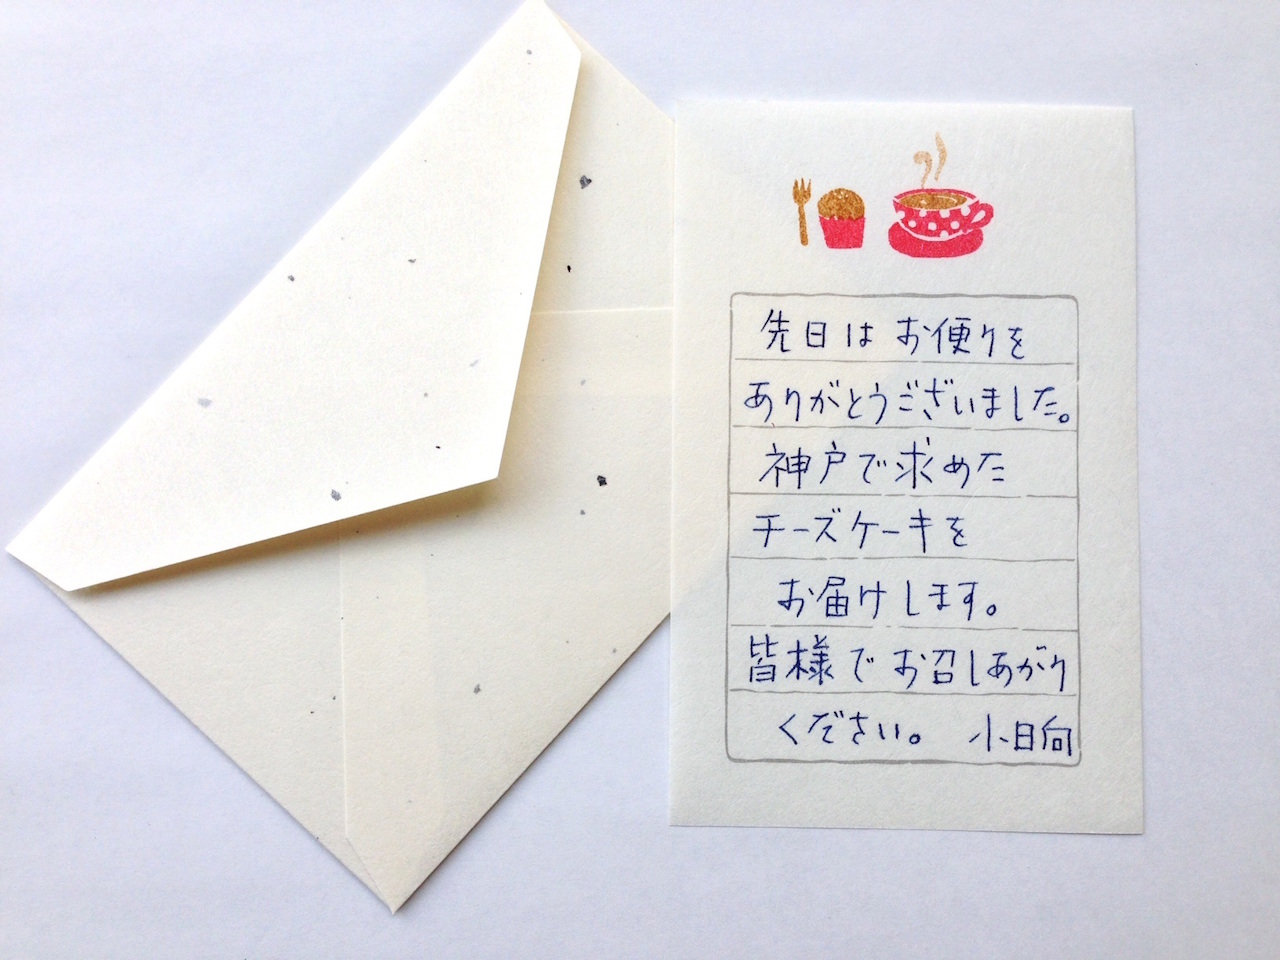 先日は お便りを
ありがとうございました。
神戸で求めた
チーズケーキを
お届けします。
皆様で お召しあがり
ください。 小日向